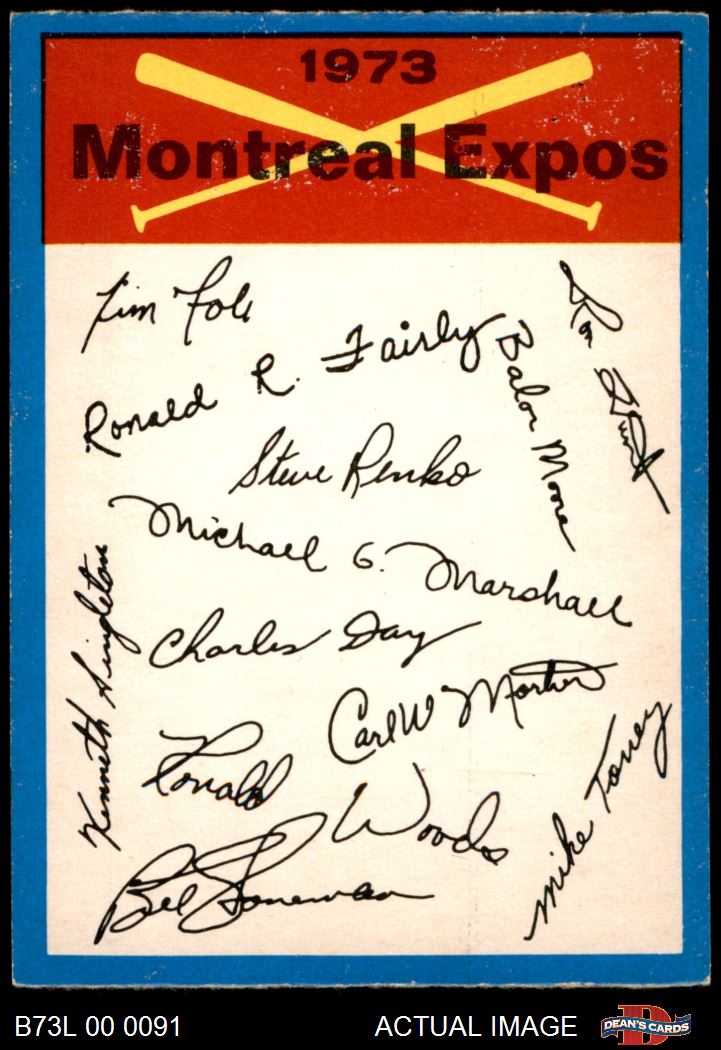 1973
Montreal Expos
Tim Foli
Ronald R. Fairly
Balor Moore
Ron Hunt
Steve Renko
Michael G. Marshall
Kenneth Singleton
Charles Day
Carl W Morton
Ronald Woods
Mike Torrez
Bill Stoneman
B73L 00 0091
ACTUAL IMAGE
DEAN'S CARDS